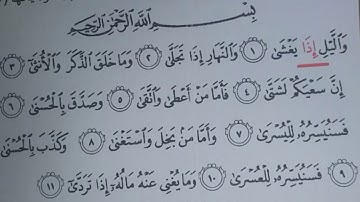 بِسْمِ اللَّهِ الرَّحْمَٰنِ الرَّحِيمِ
وَالَّيْلِ إِذَا يَغْشَىٰ ١ وَالنَّهَارِ إِذَا تَجَلَّىٰ ٢ وَمَا خَلَقَ الذَّكَرَ وَالْأُنثَىٰ ٣
إِنَّ سَعْيَكُمْ لَشَتَّىٰ ٤ فَأَمَّا مَنْ أَعْطَىٰ وَاتَّقَىٰ ٥ وَصَدَّقَ بِالْحُسْنَىٰ ٦
فَسَنُيَسِّرُهُ لِلْيُسْرَىٰ ٧ وَأَمَّا مَنْ بَخِلَ وَاسْتَغْنَىٰ ٨ وَكَذَّبَ بِالْحُسْنَىٰ
٩ فَسَنُيَسِّرُهُ لِلْعُسْرَىٰ ١٠ وَمَا يُغْنِي عَنْهُ مَالُهُ إِذَا تَرَدَّىٰ ١١